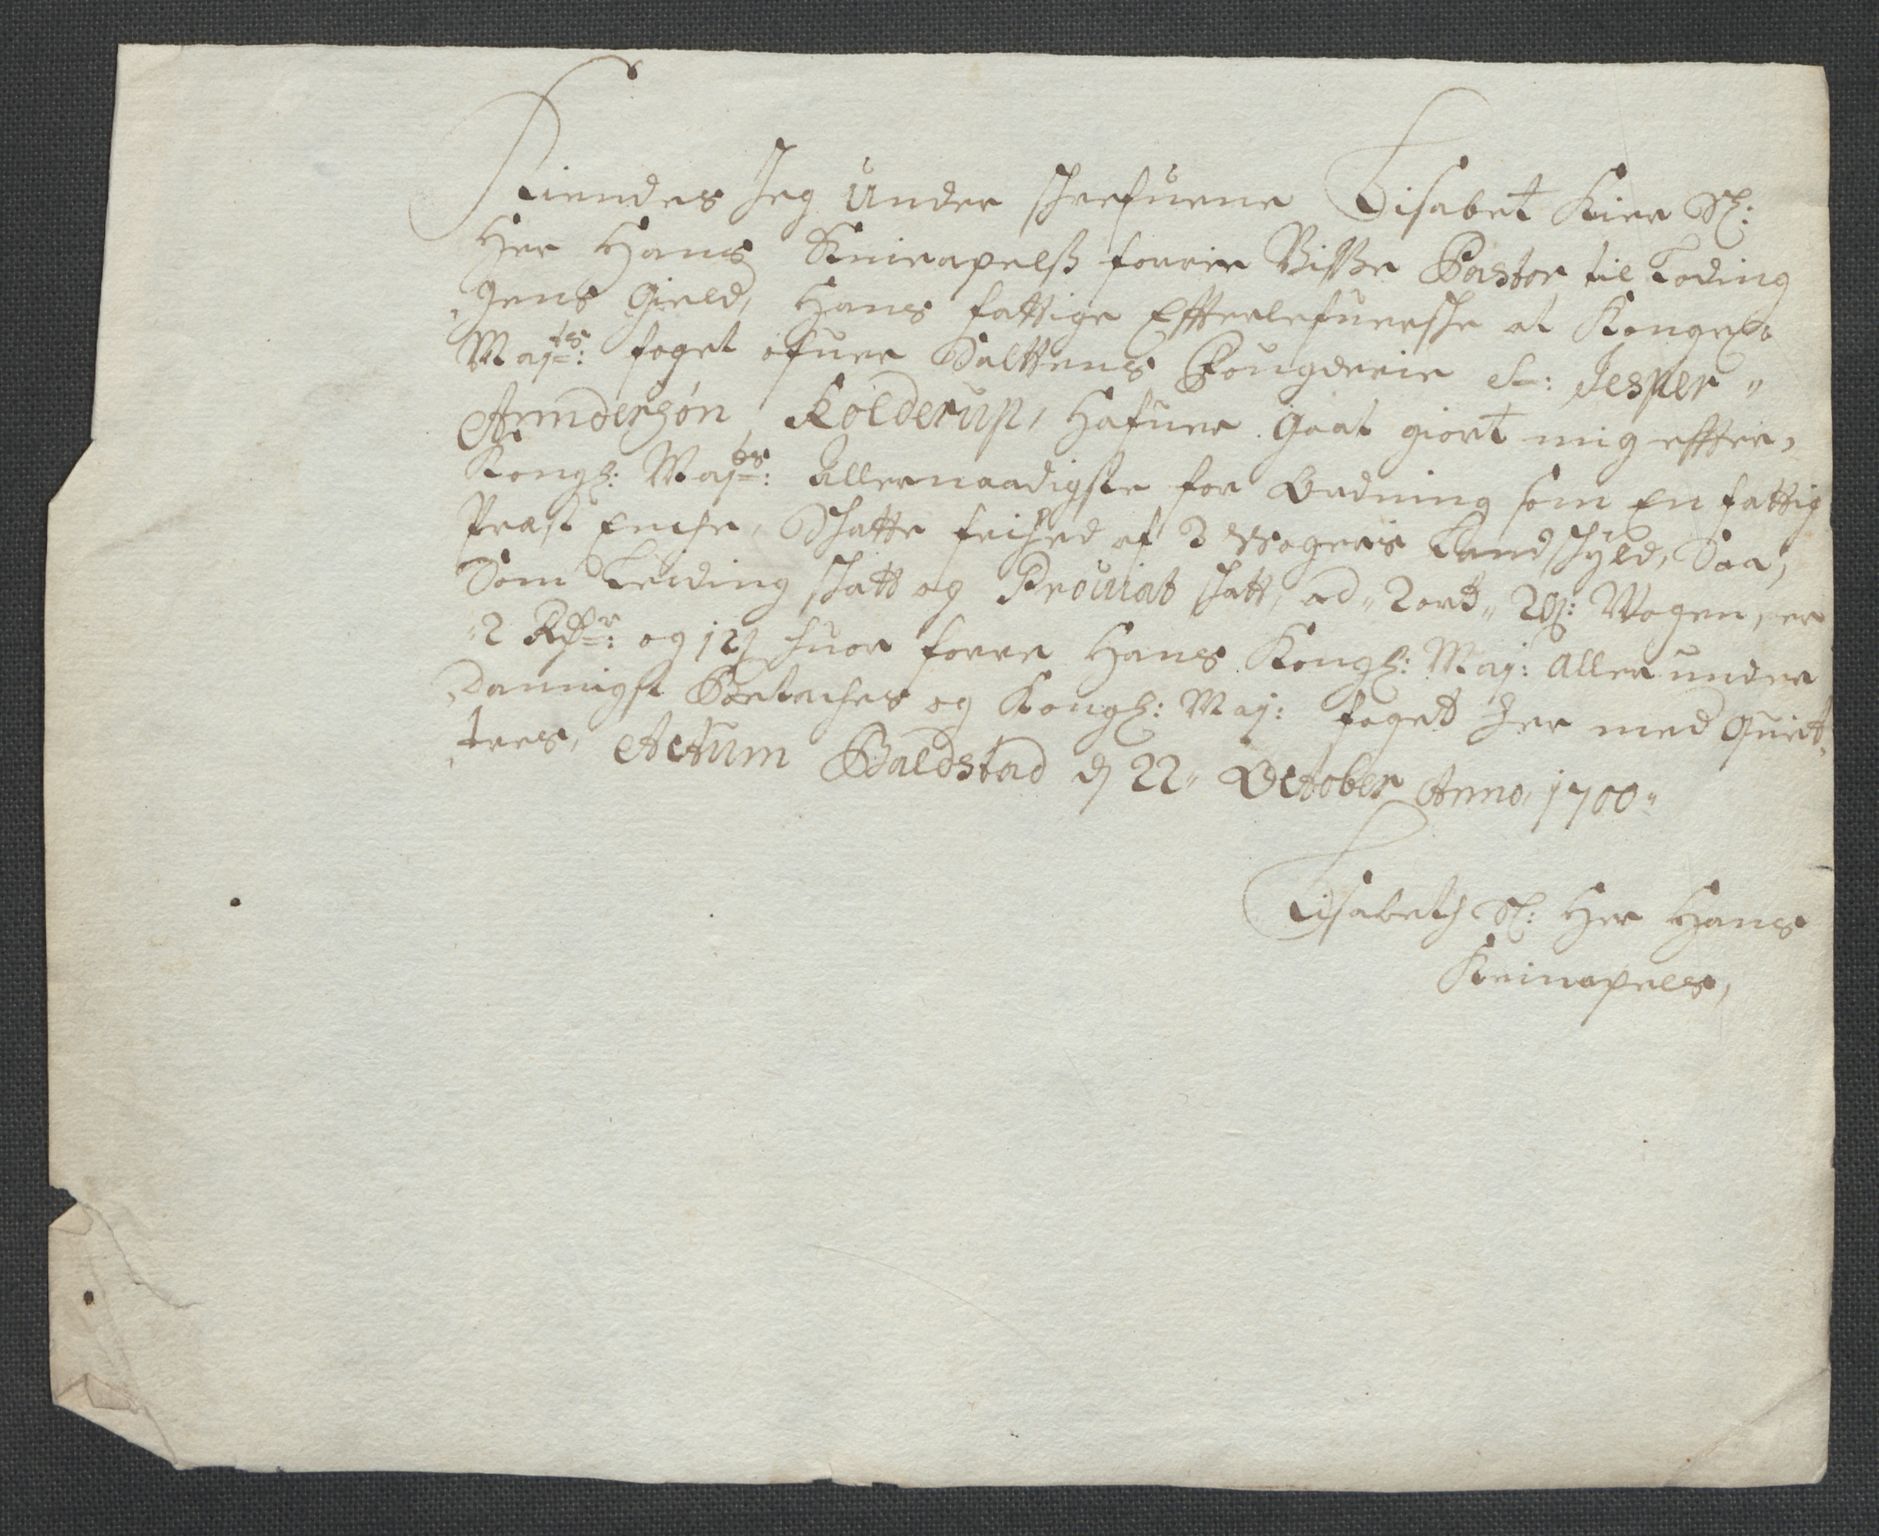 Kiendes Jeg under schrefuene Lisabet Kier Sl:
Her Hans Knieapelß forrie Pastor til Loding
gens Gield, Hans fattige Effterlefuersche at Kongel:
Maj:ts foget ofuer Salttens Fougderie Sr: Jesper
Anndersøn Kolderup, Hafuer Gaat giort mig effter
Kongl: Maj:ts Allernaadigste for Ordning som En fattig
Præst Enche, Schatte frihed af 3 Wogers Landschyld, Saa,
Som Leiding schatt og Prouiat schatt, ad 2 ort 2 ß: Wogen, er
2 Rdr: og 12 ß huor forre Hans Kongl: Maj: Aller under
dannigst Betaches og Kongl: Maj: foget Her med Quit
teres, Actum Baldstad d 22 October Anno, 1700
Lisabeth Sl: Her Hans
Kniapels,